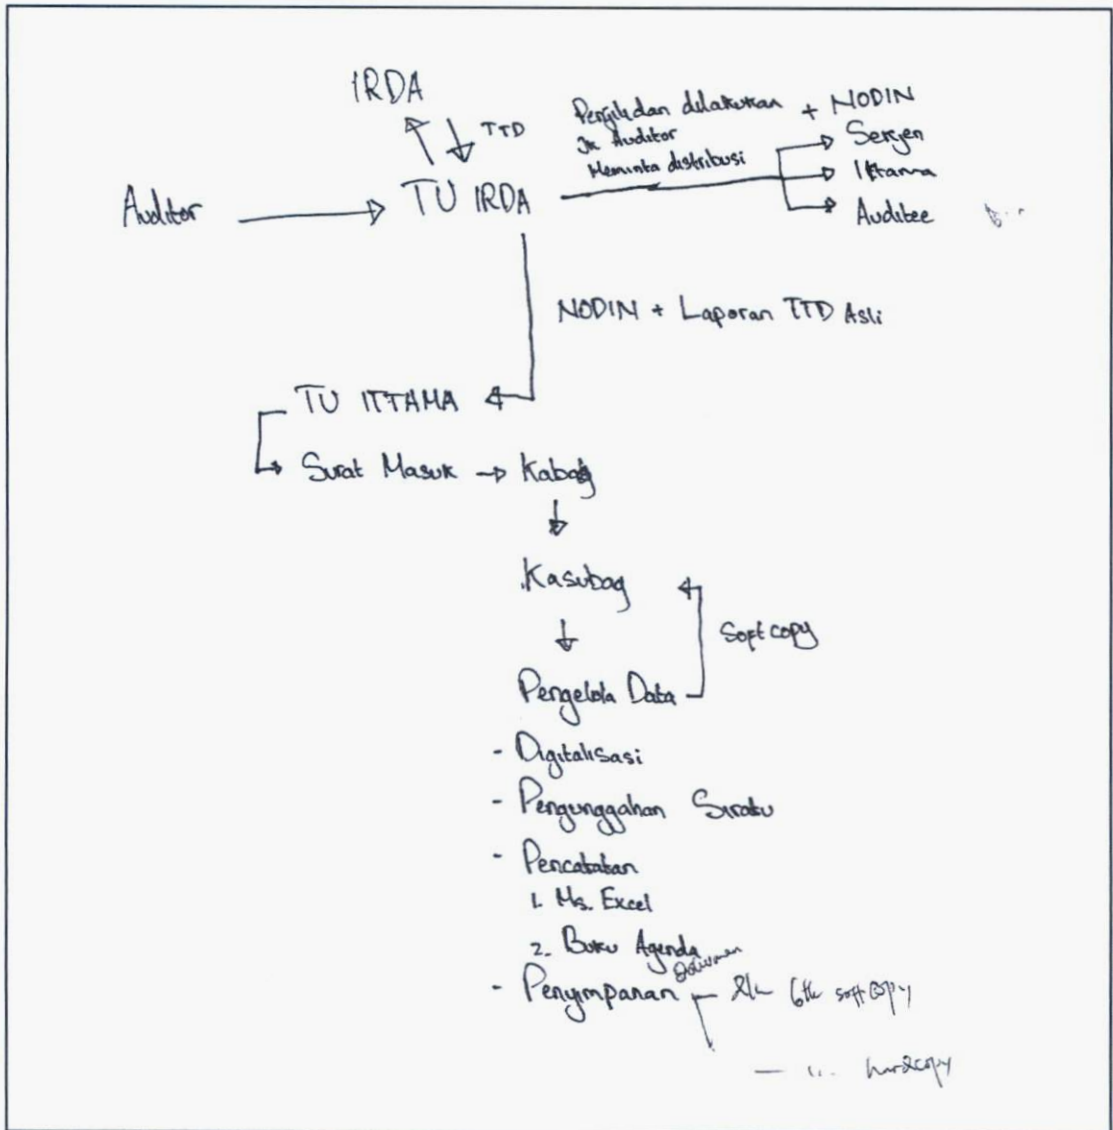 IRDA
TTD
Auditor
TU IRDA
dilakukan
Jk Auditor
Meminta distribusi
+ NODIN
Sekjen
Ittama
Auditee
NODIN + Laporan TTD Asli
TU ITTAMA
Surat Masuk → Kabag
Kasubag
Soft copy
Pengelola Data
- Digitalisasi
- Pengunggahan
- Pencatatan
1. Ms. Excel
2. Buku Agenda
Dokumen
- Penyimpanan
soft copy
hardcopy